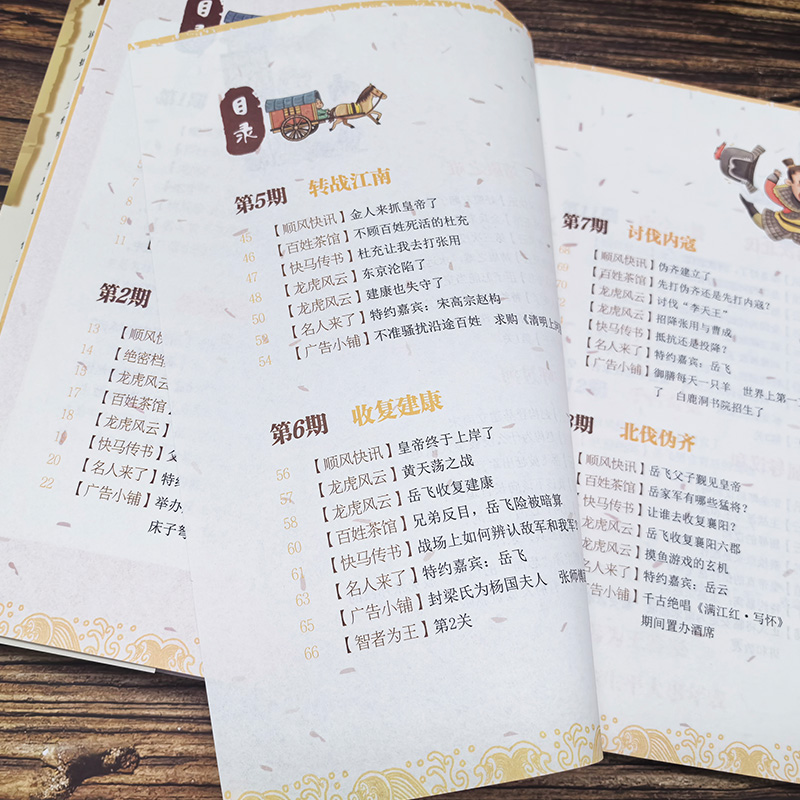 目录
第5期 转战江南
45 【顺风快讯】金人来抓皇帝了
46 【百姓茶馆】不顾百姓死活的杜充
47 【快马传书】杜充让我去打张用
48 【龙虎风云】东京沦陷了
48 【龙虎风云】建康也失守了
50 【名人来了】特约嘉宾：宋高宗赵构
54 【广告小铺】不准骚扰沿途百姓 求购《清明上河
第6期 收复建康
56 【顺风快讯】皇帝终于上岸了
57 【龙虎风云】黄天荡之战
58 【龙虎风云】岳飞收复建康
60 【百姓茶馆】兄弟反目，岳飞险被暗算
61 【快马传书】战场上如何辨认敌军和我军
63 【名人来了】特约嘉宾：岳飞
65 【广告小铺】封梁氏为杨国夫人 张师
66 【智者为王】第2关
第2期
13 【顺风快讯】
14 【绝密档
15 【龙虎风云】
17 【百姓茶馆】
18 【龙虎风云】
19 【快马传书】
20 【名人来了】特
22 【广告小铺】举办
床子弩
第7期 讨伐内寇
【顺风快讯】伪齐建立了
69 【百姓茶馆】先打伪齐还是先打内寇？
【龙虎风云】讨伐“李天王”
【龙虎风云】招降张用与曹成
【快马传书】抵抗还是投降？
【名人来了】特约嘉宾：岳飞
【广告小铺】御膳每天一只羊 世界上第一
了 白鹿洞书院招生了
期 北伐伪齐
【顺风快讯】岳飞父子觐见皇帝
【百姓茶馆】岳家军有哪些猛将？
【快马传书】让谁去收复襄阳？
【龙虎风云】岳飞收复襄阳六郡
【龙虎风云】摸鱼游戏的玄机
【名人来了】特约嘉宾：岳云
【广告小铺】千古绝唱《满江红·写怀》
期间置办酒席